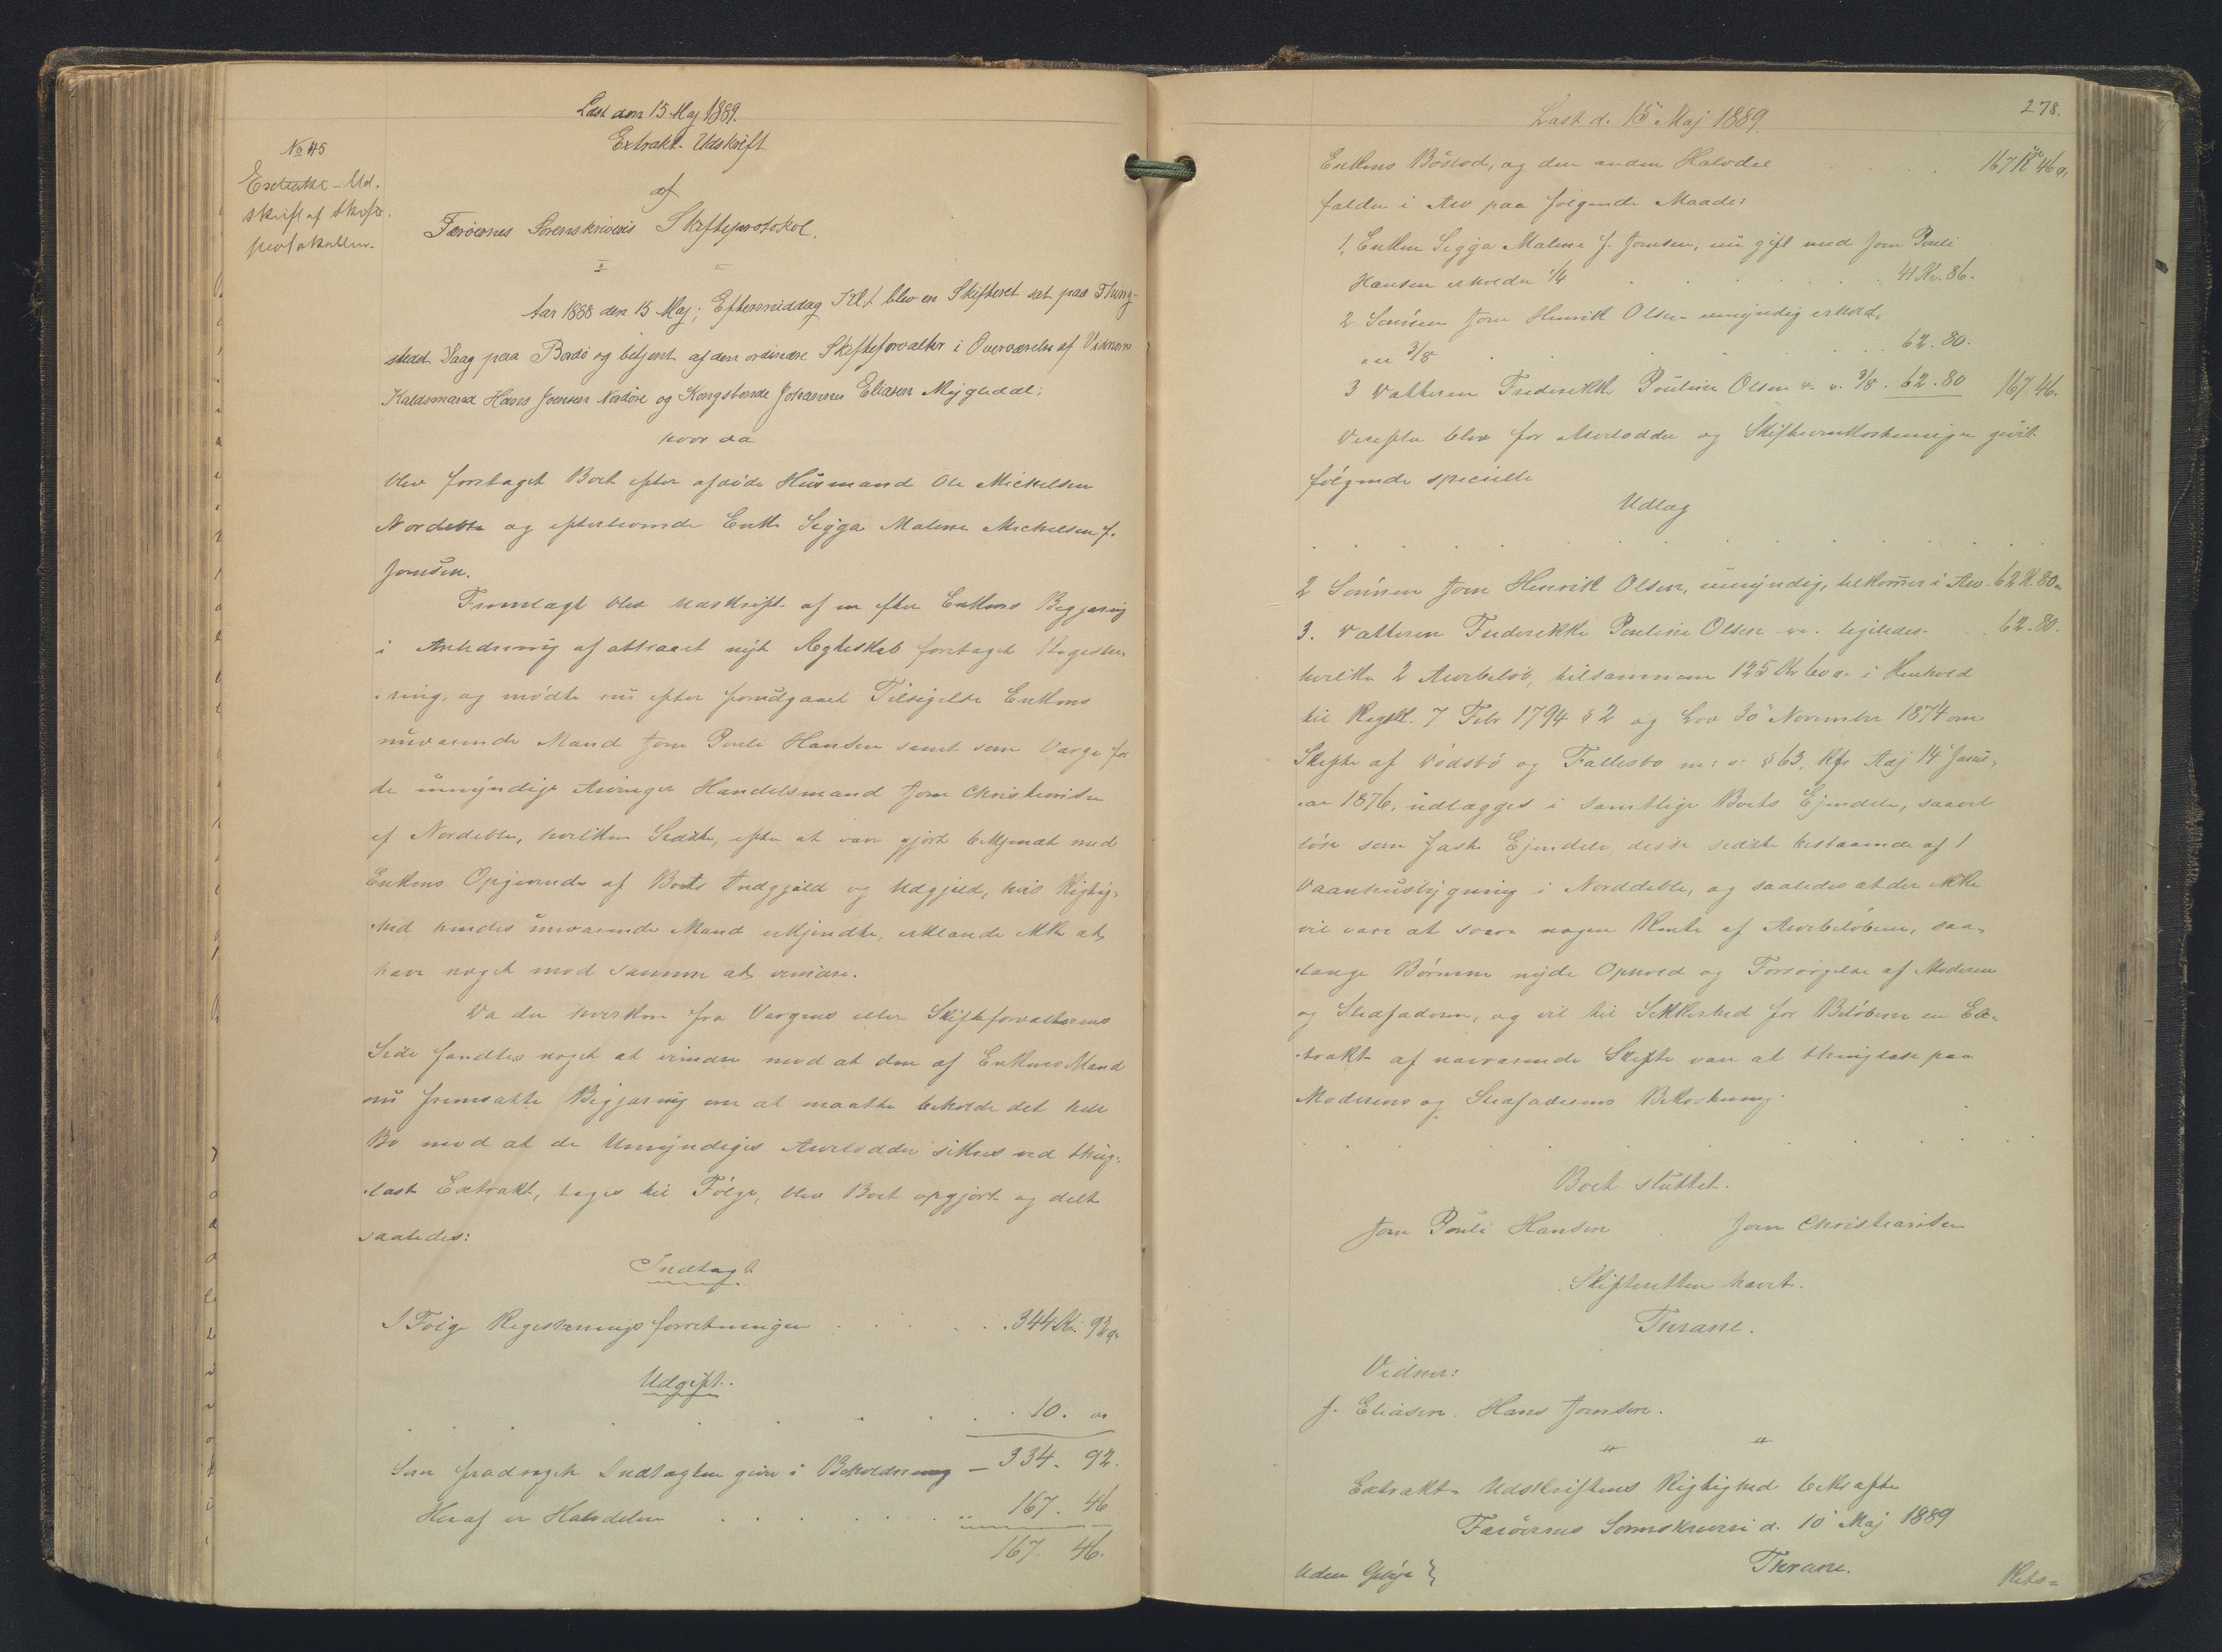 Læst den 15 Maj 1889.
No 45
Extrakt-Ud-
skrift af Skifte-
protokollen.
Extrakt-Udskrift
af
Færøernes Sorenskriveris Skifteprotokol.
Aar 1888 den 15 Maj; Eftermiddag Kl. 1 blev en Skifteret sat paa Thing-
stedet Vaag paa Bordø og betjent af den ordinære Skifteforvalter i Overværelse af Vidnerne
Kaldsmand Hans Joensen Nordøre og Kongsbonde Johannes Eliasen Mygledal;
hvor da
blev foretaget Boet efter afdøde Husmand Ole Mickelsen
Nordeble og efterlevende Enke Sigga Malene Mickelsen f.
Joensen.
Fremlagt blev Udskrift af en efter Enkens Begjæring
i Anledning af attraaet nyt Ægteskab foretaget Registre-
ring, og mødte nu efter forudgaaet Tilsigelse Enkens
nuværende Mand Joen Pouli Hansen samt som Værge for
de umyndige Arvinger Handelsmand Joen Christiansen
af Nordeble, hvilken Sidste, efter at være gjort bekjendt med
Enkens Opgivende af Boets Indgjæld og Udgjæld, hvis Rigtig-
hed hendes nuværende Mand erkjendte, erklærede ikke at
have noget mod samme at erindre.
Da der hverken fra Værgens eller Skifteforvalterens
Side fandtes noget at erindre mod at den af Enkens Mand
nu fremsatte Begjæring om at maatte beholde det hele
Bo mod at de Umyndiges Arvelodder sikres ved thing-
læst Extrakt, toges til Følge, blev Boet opgjort og delt
saaledes:
Indtægt.
I Følge Registreringsforretningen . . . . . 344 Kr. 92 ø.
Udgift.
. . . . . . . 10. "
Som fradraget Indtægten giver i Beholdning — 334. 92.
Heraf er Halvdelen . . . . . . " 167. 46
167. 46.
Læst d. 15 Maj 1889.
278.
Enkens Boslod, og den anden Halvdel . . . 167 Kr 46 ø.
falder i Arv paa følgende Maade:
1. Enken Sigga Malene f. Joensen, nu gift med Joen Pouli
Hansen erholder 1/4 . . . . . . 41 Kr. 86.
2 Sønnen Joen Henrik Olsen umyndig erhold-
er 3/8 . . . . . . 62. 80.
3 Datteren Frederikke Pouline Olsen u. v. 3/8 . 62. 80 167. 46.
Derefter blev for Arvelodder og Skifteomkostninger givet
følgende specielle
Udlæg
. . . . . . . . . .
2 Sønnen Joen Henrik Olsen, umyndig, tilkommer i Arv 62 K. 80.
3. Datteren Frederikke Pouline Olsen . ligeledes . . 62-80.
hvilke 2 Arvebeløb, tilsammen 125 Kr 60 ø. i Henhold
til Regskl. 7 Febr 1794 § 2 og Lov 30 November 1874 om
Skifte af Dødsbo og Fællesbo m: v: § 63, kfr Adj 14 Janu-
ar 1876, udlægges i samtlige Boets Ejendele, saavel
løse som faste Ejendele, disse sidste bestaaende af 1
Vaanhusbygning i Norddeble, og saaledes at der ikke
vil være at svare nogen Rente af Arvebeløbene, saa-
længe Børnene nyde Ophold og Forsørgelse af Moderen
og Stedfaderen, og vil til Sikkerhed for Beløbene en Ex-
trakt af nærværende Skifte være at thinglæse paa
Moderens og Stedfaderens Bekostning.
. . . . . . . . . .
Boet sluttet.
Joen Pouli Hansen . Joen Christiansen
Skifteretten hævet.
Thrane.
Vidner:
J. Eliasen. Hans Joensen.
Extrakt-Udskriftens Rigtighed bekræfte
Færøernes Sorenskriveri d. 10 Maj 1889
Thrane.
Uden Gebyr }
Rets-